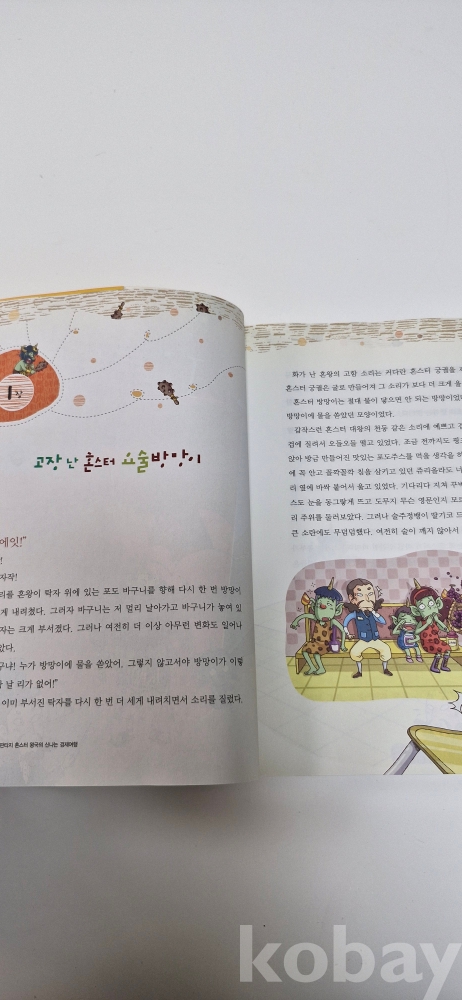 1장
고장 난 혼스터 요술방망이
에잇!"
!
자작!
리를 혼왕이 탁자 위에 있는 포도 바구니를 향해 다시 한 번 방망이
게 내려쳤다. 그러자 바구니는 저 멀리 날아가고 바구니가 놓여 있
자는 크게 부서졌다. 그러나 여전히 더 이상 아무런 변화도 일어나
았다.
구냐! 누가 방망이에 물을 쏟았어, 그렇지 않고서야 방망이가 이렇
날 리가 없어!"
이미 부서진 탁자를 다시 한 번 더 세게 내려치면서 소리를 질렀다.
판타지 혼스터 왕국의 신나는 경제여행
화가 난 혼왕의 고함 소리는 커다란 혼스터 궁궐을
혼스터 궁궐은 굴로 만들어져 그 소리가 보다 더 크게 울
혼스터 방망이는 절대 물이 닿으면 안 되는 방망이였
방망이에 물을 쏟았던 모양이었다.
갑작스런 혼스터 대왕의 천둥 같은 소리에 예쁘고
겁에 질려서 오들오들 떨고 있었다. 조금 전까지도
앉아 방금 만들어진 맛있는 포도주스를 먹을 생각을
에 꼭 안고 꼴깍꼴깍 침을 삼키고 있던 쥬리울라도 너
리 옆에 바싹 붙어서 울고 있었다. 기다리다 지쳐 꾸벅
스도 눈을 동그랗게 뜨고 도무지 무슨 영문인지 모르
리 주위를 둘러보았다. 그러나 술주정뱅이 딸기코
큰 소란에도 무덤덤했다. 여전히 술이 깨지 않아서
kobay